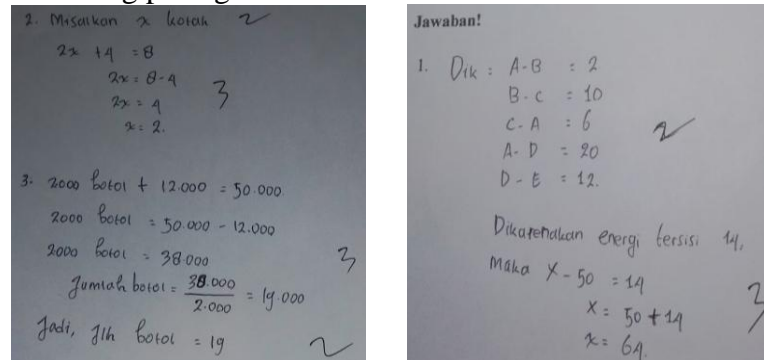 2. Misalkan x kotak 2
2x + 4 = 8
2x = 8 - 4
2x = 4 3
x = 2.
3. 2000 botol + 12.000 = 50.000.
2000 botol = 50.000 - 12.000
2000 botol = 38.000 3
Jumlah botol = 38.000 / 2.000 = 19.000
Jadi, Jlh botol = 19 2
Jawaban!
1. Dik : A-B : 2
B-C = 10
C-A : 6 2
A-D = 20
D-E = 12.
Dikarenakan energi tersisi 14,
Maka X - 50 = 14
X = 50 + 14 3
x = 64.